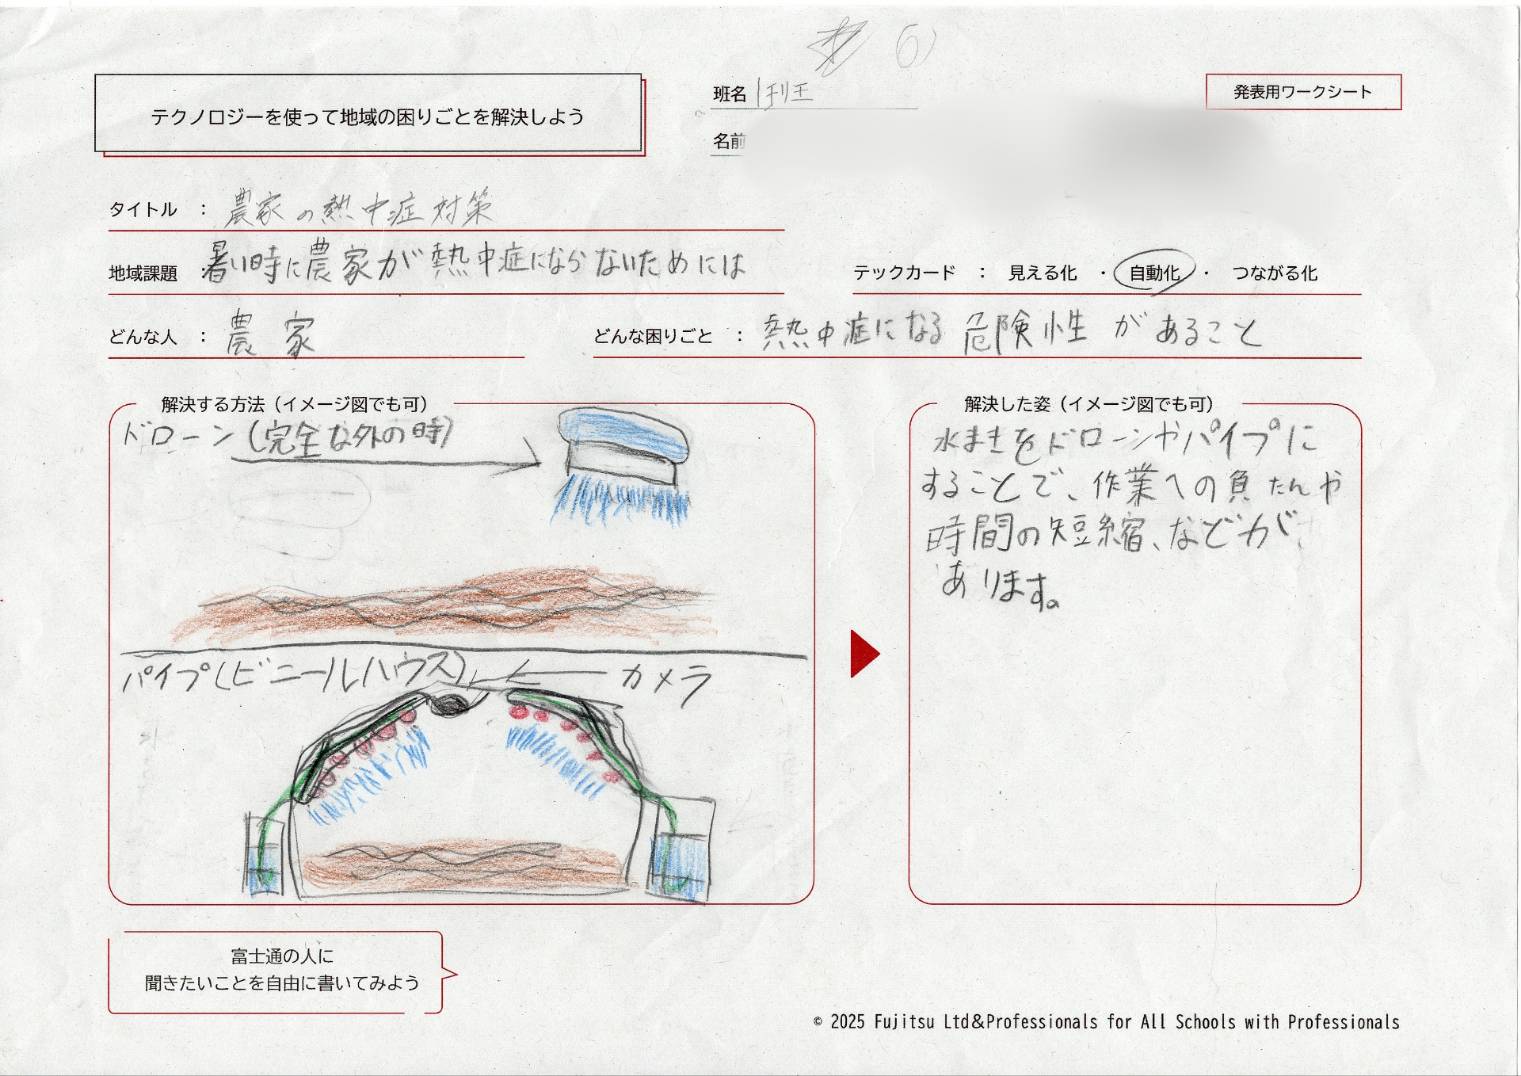 6
テクノロジーを使って地域の困りごとを解決しよう
班名 1班
発表用ワークシート
名前
タイトル : 農家の熱中症対策
地域課題 : 暑い時に農家が熱中症にならないためには
テックカード : 見える化 ・ 自動化 ・ つながる化
どんな人 : 農家
どんな困りごと : 熱中症になる危険性があること
解決する方法（イメージ図でも可）
ドローン(完全な外の時)
パイプ(ビニールハウス)
カメラ
解決した姿（イメージ図でも可）
水まきをドローンやパイプに
することで、作業への負たんや
時間の短縮、などが
あります。
富士通の人に
聞きたいことを自由に書いてみよう
© 2025 Fujitsu Ltd&Professionals for All Schools with Professionals